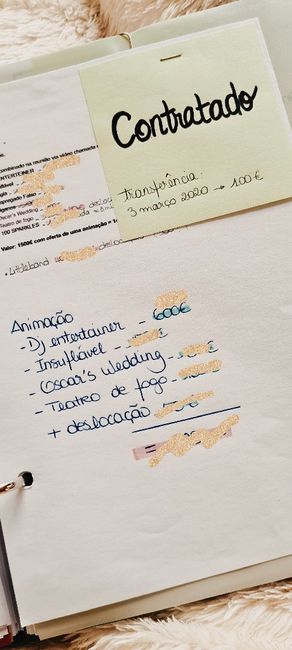 Contratado
transferência:
3 março 2020 → 100€
combinado na reunião via vídeo chamada
ENTERTEINER -
Oscar's Wedding -
Teatro de fogo -
100 SPARKLES -
Valor: 1500€ com oferta de uma animação =
• Littleband
Animação
600€
- DJ entertainer -
- Insuflável -
- Oscar's Wedding -
- Teatro de fogo -
+ deslocação
=